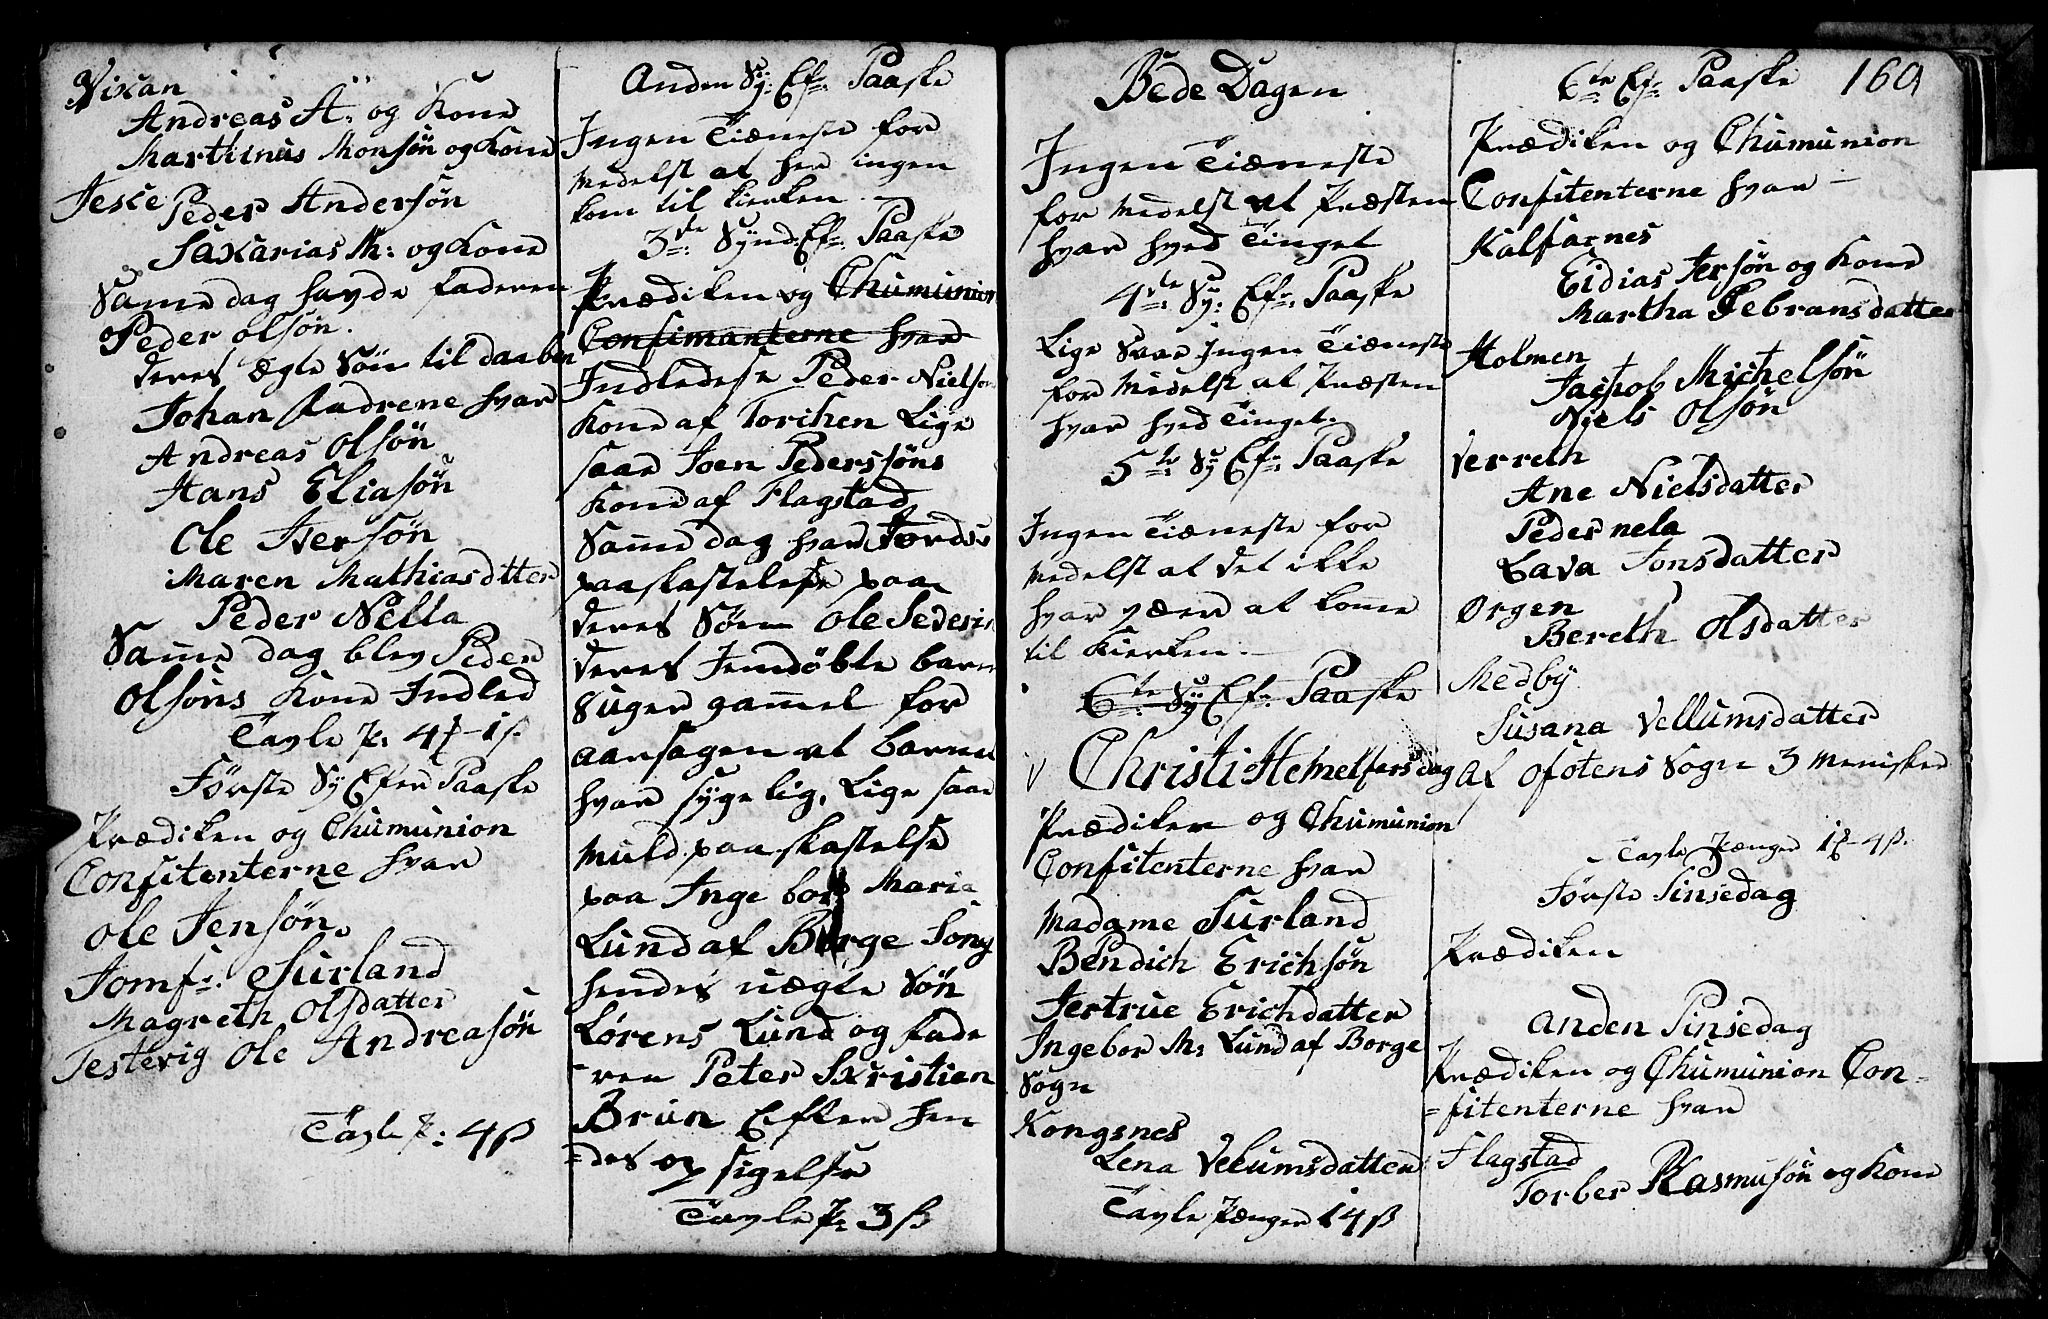 Vikan
Andreas A: og Kone
Marthinus Monsøn og Kone
Jesce
Peder Andersøn
Saxarias M: og Kone
Same dag havde faderen
Peder olsøn.
deres Ægte Søn til daaben
Johan fadrene hvar
Andreas Olsøn
Hans Eliasøn
Ole Iversøn
Maren Mathiasdtter
Peder Nella
Same dag blev Peder
Olsøns Kone Indled
Tavle P: 4 1ß
Første Sy Efter Paaske
Prædiken og Chumunion
Confitenterne hvar
Ole Jensøn
Jomf: Surland
Magreth Olsdatter
Testevig Ole Andreasøn
Tavle P: 4ß
Anden Sy: Ef: Paaske
Ingen Tiæneste for
medelst at her ingen
kom til kierken
3de Synd: Ef: Paaske
Prædiken og Chumunion
Confirmanterne hvar
Indledese Peder Nielsøn
Kone af Torichen Lige
saae Joen Pederssøns
Kone af Flagstad
Same dag hvar Jords
paakastelese paa
deres Søn Ole Sedesin
deres Jemdøbte barn
8 uger gamel for
aarsagen at barnet
hvar sygelig, Lige saae
Muld paa kastelse
paa Inge bor Maria
Lund af Borge Song
hendes uægte Søn
Lorens Lund og fade
ren Peter Kristian
Brun Efter hen
des op sigelse
Tavle P: 3ß
Bede Dagen
Ingen Tiæneste
for medelst at Præsten
hvar hved Tinget
4de Sy: Ef: Paaske
Lige Svar Ingen Tiæneste
for Medelst at Præsten
hvar hved Tinget
5te Sy Ef: Paaske
Ingen Tiæneste for
medelst at det ikke
hvar væer at kome
til Kierken
6te Sy Ef: Paaske
Christi Hemelfarsdag
Prædiken og Chumunion
Confitenterne hvar
Madame Surland
Bendich Erichsøn
Jertrue Erichdatter
Ingebor M: Lund af Borge
Sogn
Kongsnes
Lena Velumsdatter
Tavle Pænger 14ß
6te Ef: Paaske 160
Prædiken og Chumunion
Confitenterne hvar
Kalfarnes
Eidias Jersøn og Kone
Martha Jebransdatter
Holmen
Jacob Michelsøn
Niels Olsøn
Verreth
Ane Nielsdatter
Peder nela
Lava Jonsdatter
Orgen
Bereth Olsdatter
Medby
Susana Vellumsdatter
Af Ofotens Sogn 3 Menisker
Tavle Pænger 1 4ß.
Første Pinsedag
Prædiken
Anden Pinsedag
Prædiken og Chumunion Con-
=fitenterne hvar
Flagstad
Torber Rasmusøn og Kone